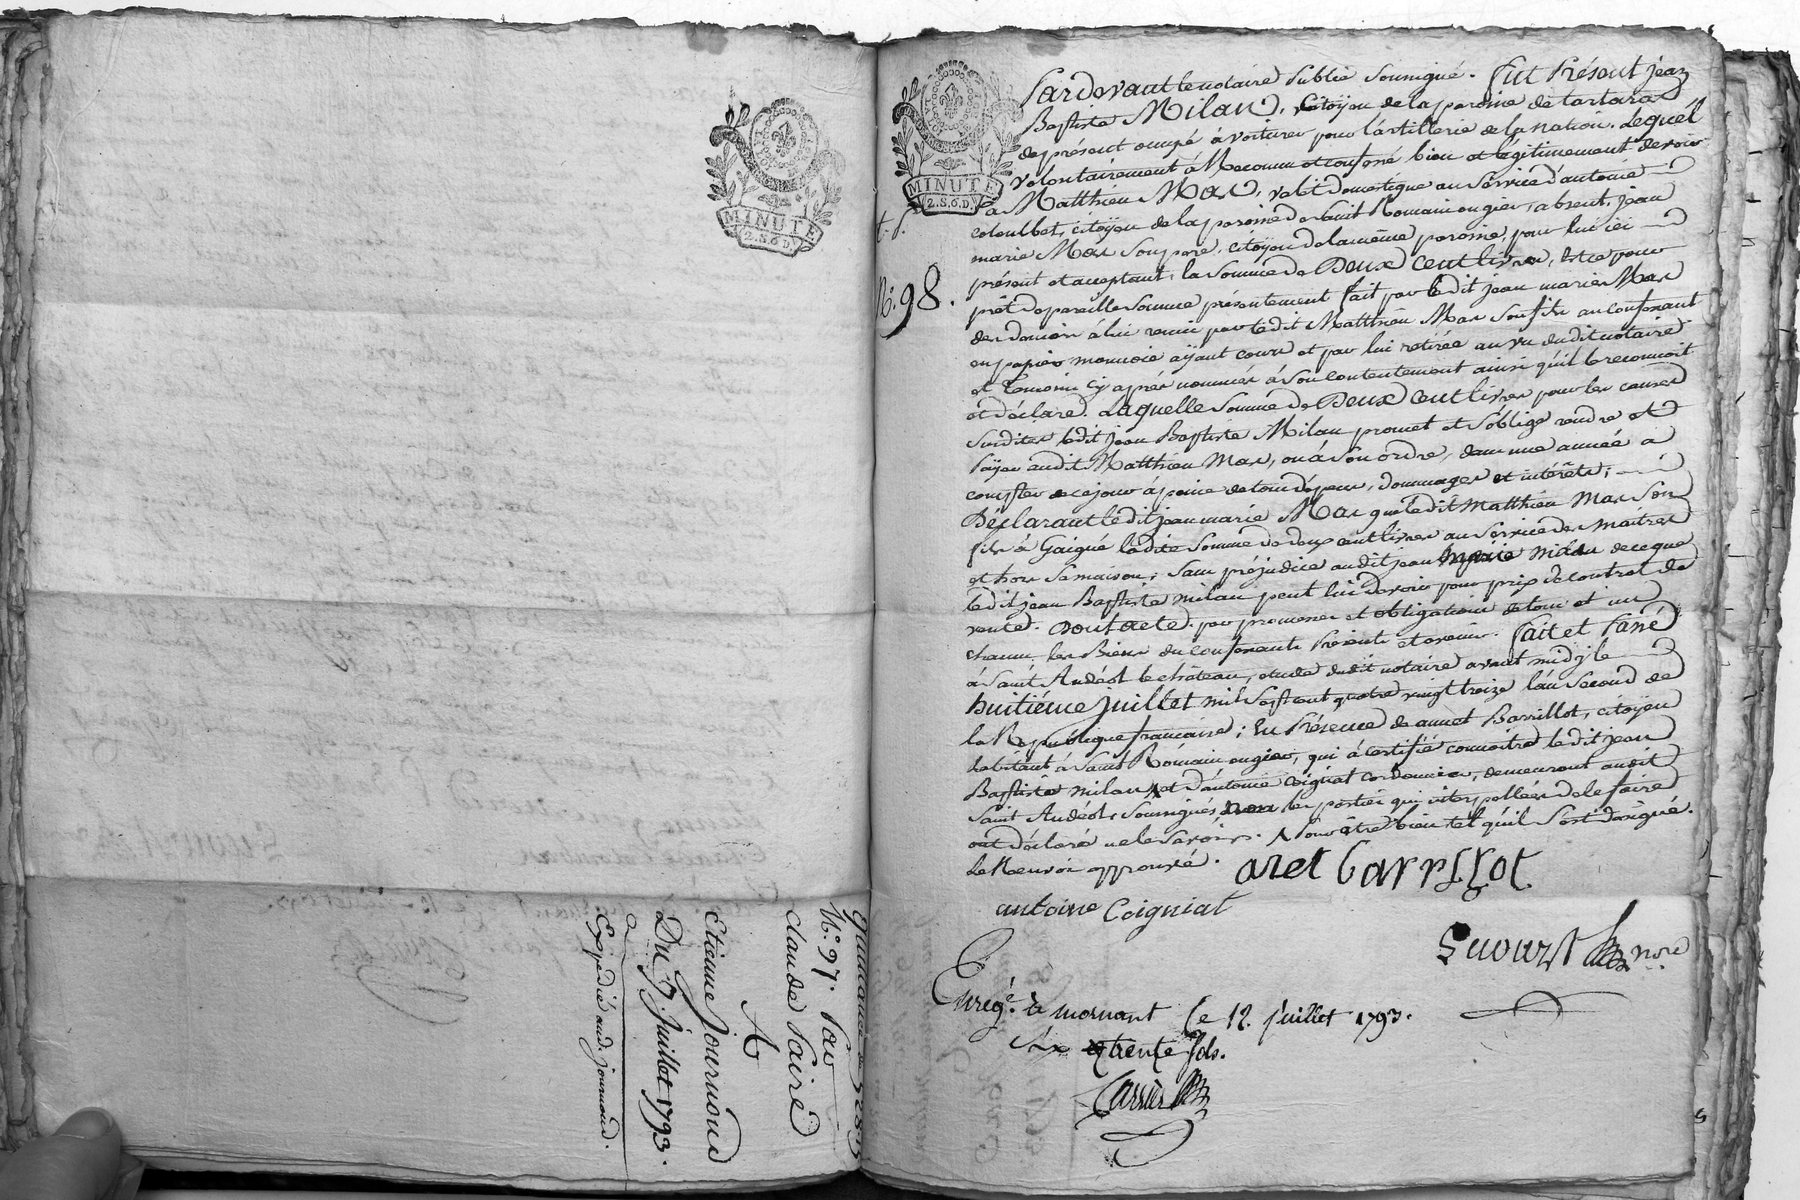 MINUTE
2.S.6.D.
Quittance de
N.° 97. Par
claude Pairé
A
Etienne Journoud
Du 7. Juillet 1793.
Expedié aud. journoud.
MINUTE
2.S.6.D.
N.° 98.
Pardevant le notaire Public soussigné. fut Présent jean
Baptiste Milan, citoÿen de la paroisse de tartara
de présent occupé à voiturer pour l'artillerie de la nation. Lequel
volontairement à Reconnu et confessé bien et légitimement devoir
a Matthieu Mas, valet domestique au service d'antoine
coloulbet, citoÿen de la paroisse de saint Romain en gier, absent, jean
marie Mas son pere, citoÿen de la même paroisse, pour lui ici
présent et acceptant, la somme de Deux cent livres, et ce pour
prêt de pareille somme présentement fait par ledit jean marie Mas
des deniers à lui remis par ledit Matthieu Mas son fils au confessant
en papier monnoie aÿant cours et par lui retirée au vu dudit notaire
et temoins cy après nommés à son contentement ainsi qu'il le reconnoit
et déclare. Laquelle somme de Deux cent livres pour les causes
susdites ledit jean Baptiste Milan promet et s'oblige rendre et
païer audit Matthieu Mas, ou à son ordre, dans une année à
compter de ce jour à peine de tous dépens, dommages et intérêts;
Déclarant ledit jean marie Mas que ledit Matthieu Mas son
fils à Gaigné ladite somme de deux cent livres au service des maitres
et hors sa maison; sans préjudice audit jean marie milan de ce que
ledit jean Baptiste milan peut lui devoir pour prix de contrat de
vente. Dont acte. par promesses et obligations de tous et un
chacun les Biens du confessant Présents et avenir. fait et Passé
à saint Andéol le château, étude dudit notaire avant midÿ le
huitiéme juillet mil sept cent quatre vingt treize l'an second de
la République française; En Présence de annet Barrillot, citoÿen
habitant à saint Romain en gier, qui à certifié connoitre ledit jean
Baptiste milan et d'antoine Coignat cordonnier, demeurant audit
Saint Andéol, soussignés non les parties qui interpellées de le faire
ont déclaré ne le savoir. Pour être bien tel qu'il s'est désigné.
le Renvoi approuvé.
anet barrillot
antoine Coigniat
nore
Enregé. à mornant le 12. juillet 1793.
six trente sols.